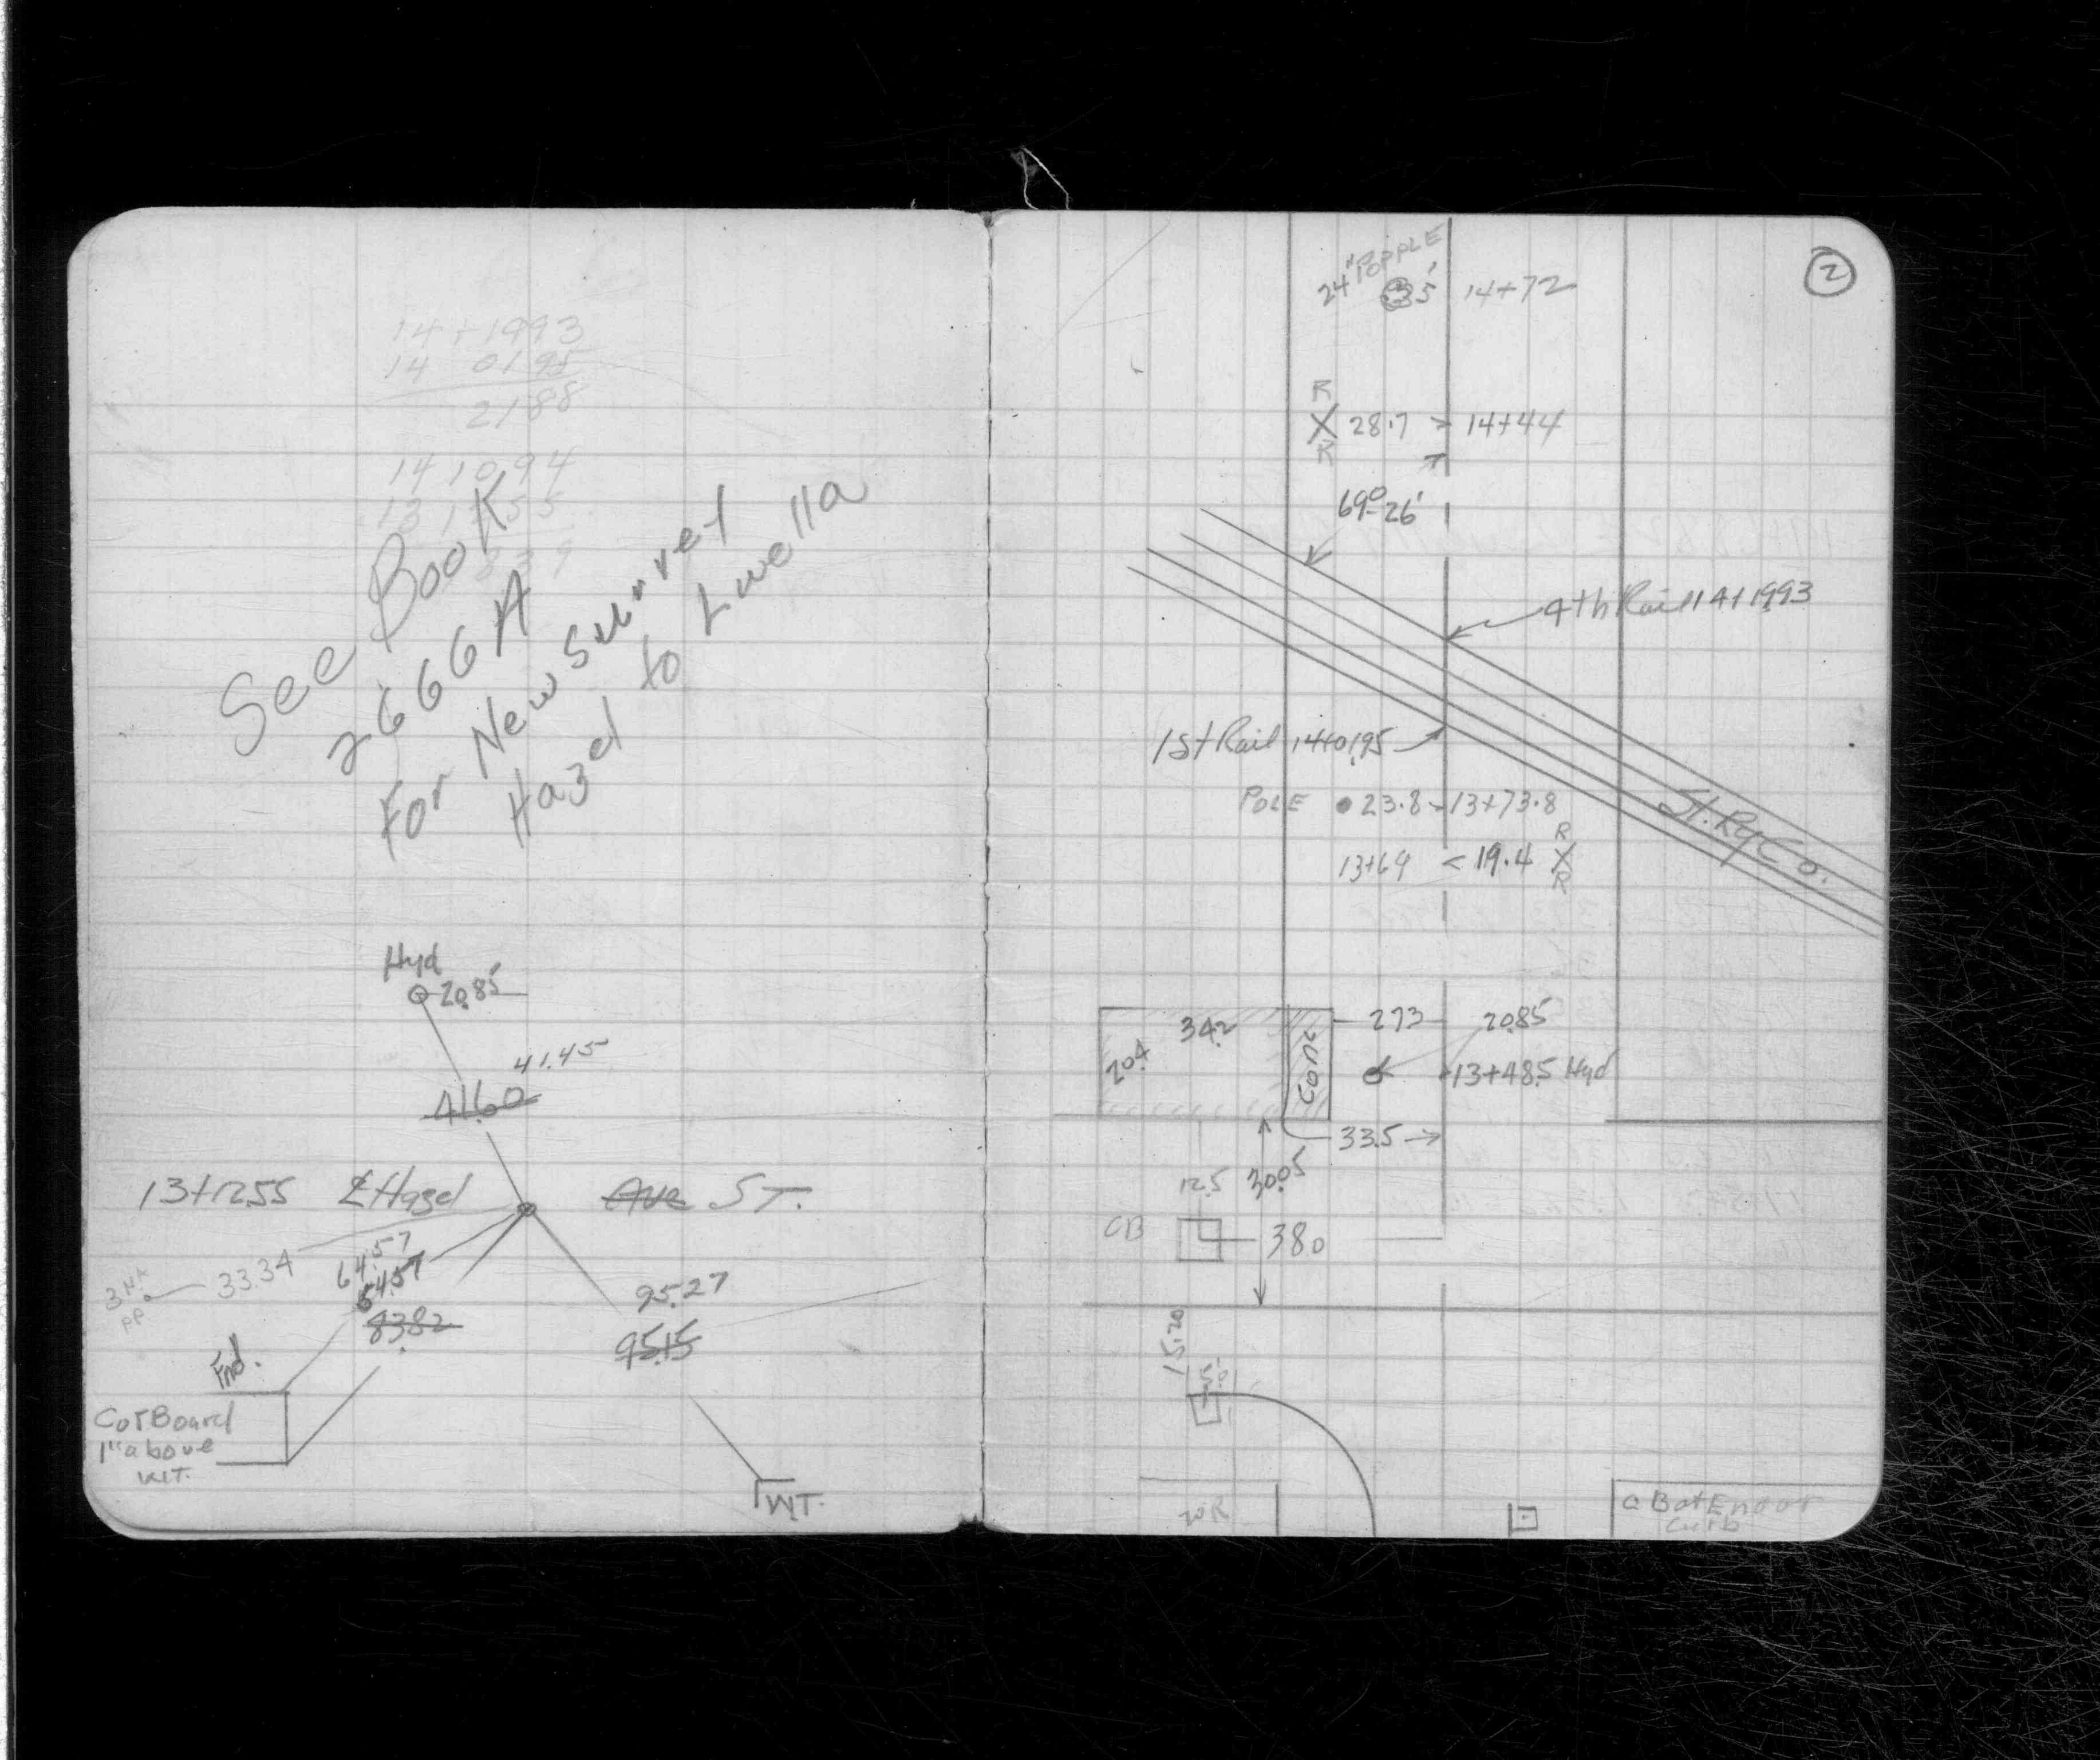 14+19.93
14 01.95
21.88
14 10.94
See Book
2666A
For New Survey
Hazel to Luella
Hyd
20.85
41.45
41.60
13+12.55 ℄ Hazel Ave ST.
33.34
64.57
64.57
83.82
95.27
95.15
Fnd.
Cor Board
1" above
W.T.
W.T.
2
24" POPPLE
35' 14+72
R
X 28.7 > 14+44
R
69°-26'
4th Rail 14+19.93
1st Rail 14+01.95
POLE 23.8 - 13+73.8
St. Ry Co.
R
13+64 < 19.4 X
R
34.2 27.3 20.85
20.4
CONC
13+48.5 Hyd
33.5
12.5 30.05
CB 38.0
15.20
20R
CB at End of
Curb